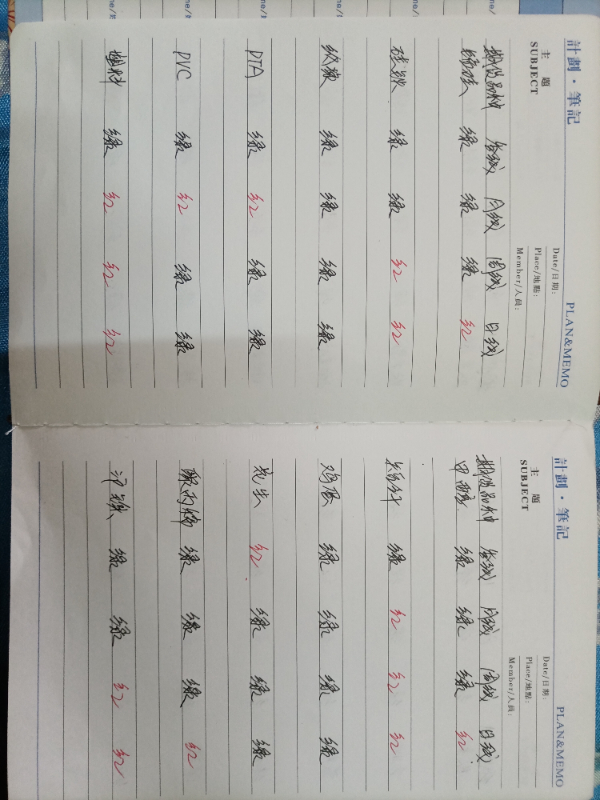 計劃·筆記 PLAN&MEMO
主題
SUBJECT
Date/日期:
Place/地點:
Member/人員:
期货品种 季线 月线 周线 日线
锰硅 绿 绿 绿 红
硅铁 绿 绿 红 红
纸浆 绿 绿 绿 绿
PTA 绿 红 绿 绿
PVC 绿 红 绿 绿
塑料 绿 红 红 红
計劃·筆記 PLAN&MEMO
主題
SUBJECT
Date/日期:
Place/地點:
Member/人員:
期货品种 季线 月线 周线 日线
甲醇 绿 绿 绿 红
绿 红 红 红
鸡蛋 绿 绿 绿 绿
花生 红 绿 绿 绿
聚丙烯 绿 绿 绿 红
绿 绿 红 红